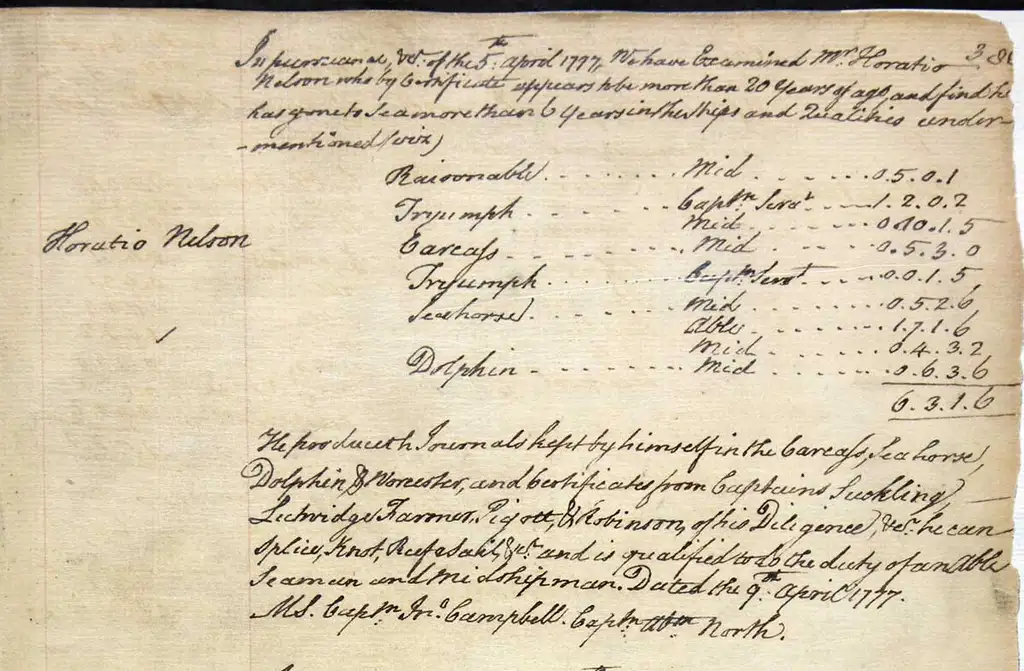 In pursuance, &c. of the 5th April 1777, We have Examined Mr. Horatio 38
Nelson who by Certificate appears to be more than 20 Years of age, and find he
has gone to Sea more than 6 Years in the Ships and Qualities under
-mentioned (viz)
Raisonable Mid 0.5.0.1
Tryumph Captns Servt 1.2.0.2
Mid 0.10.1.5
Horatio Nelson
Carcass Mid 0.5.3.0
Tryumph Captns Servt 0.0.1.5
Seahorse Mid 0.5.2.6
Able 1.7.1.6
Mid 0.4.3.2
Dolphin Mid 0.6.3.6
6.3.1.6
He produceth Journals kept by himself in the Carcass, Seahorse,
Dolphin, & Worcester, and Certificates from Captains Suckling
Lutwidge, Farmer, Pigott, & Robinson, of his Diligence, &c. he can
Splice, Knot, Reef a Sail, &c. and is qualified to do the duty of an Able
Seaman and Midshipman. Dated the 9th April 1777.
MS. Captn Jno. Campbell. Captn Abm North.